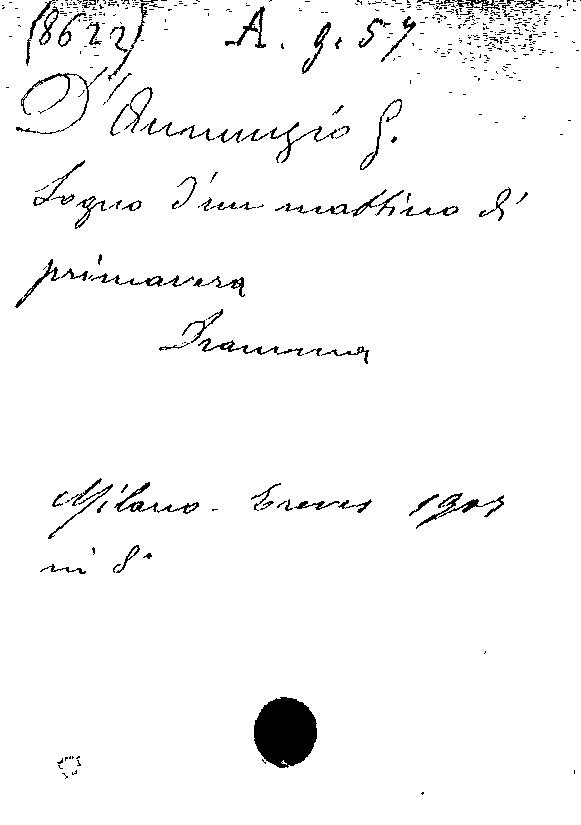 (8622) A. g. 57
D'Annunzio G.
Sogno d'un mattino di
primavera
Dramma
Milano - Treves
in 8°